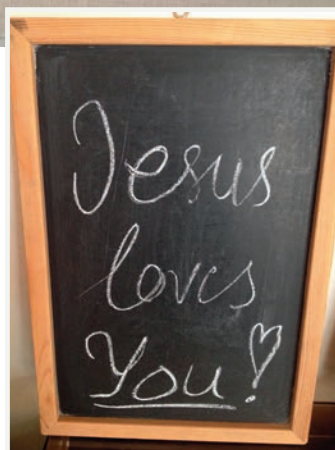 Jesus
loves
You!